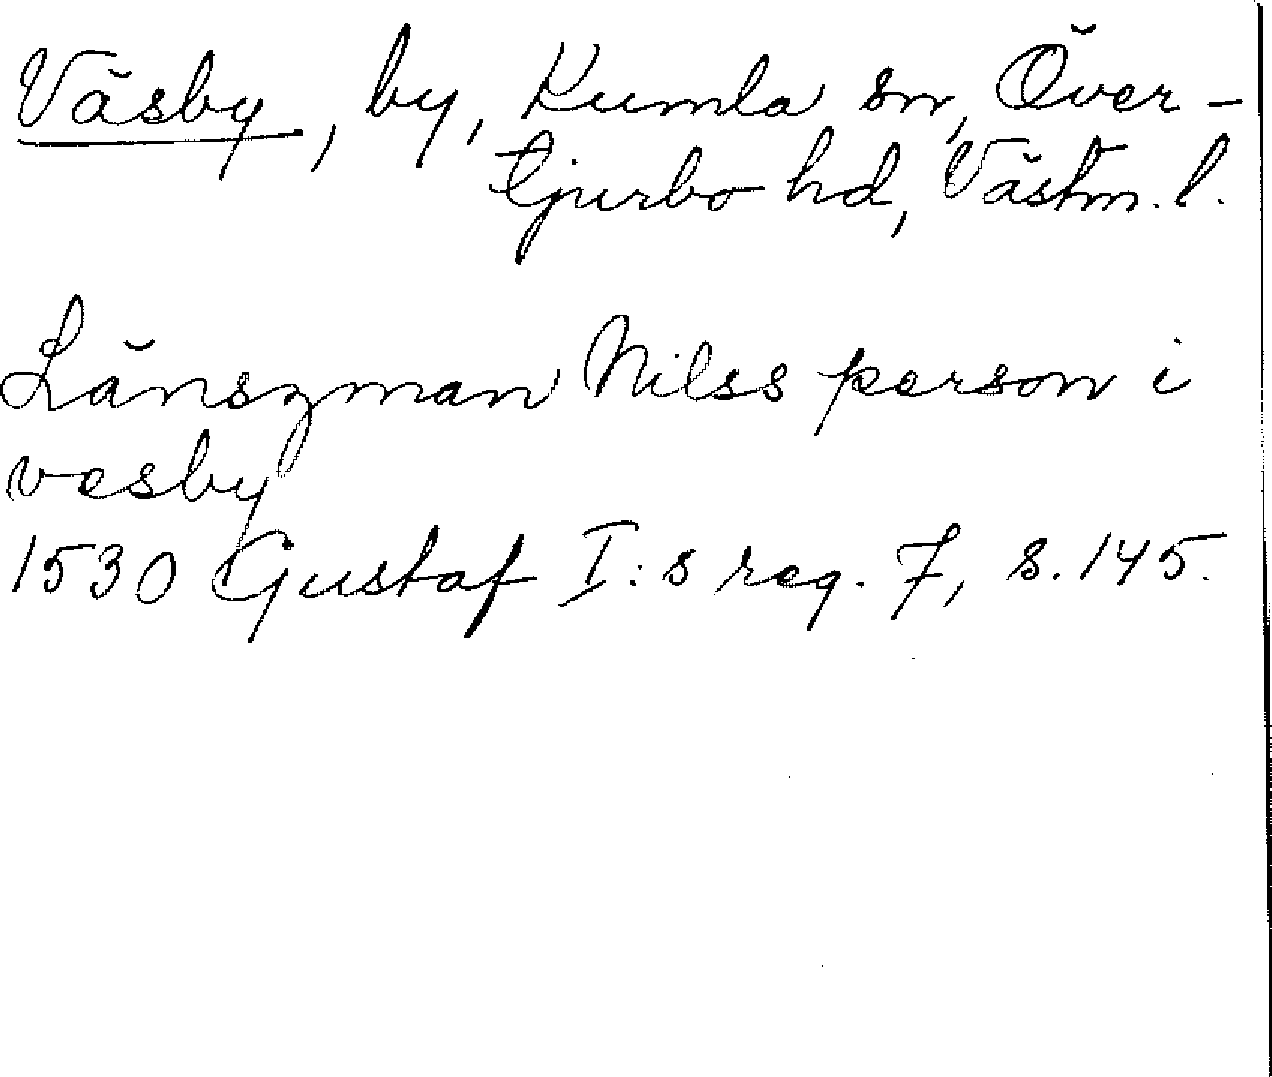 Väsby, by, Kumla sn, Över-
tjurbo hd, Västm. l.
Länszman Nilss person i
vesby
1530 Gustaf I:s reg. 7, s. 145.